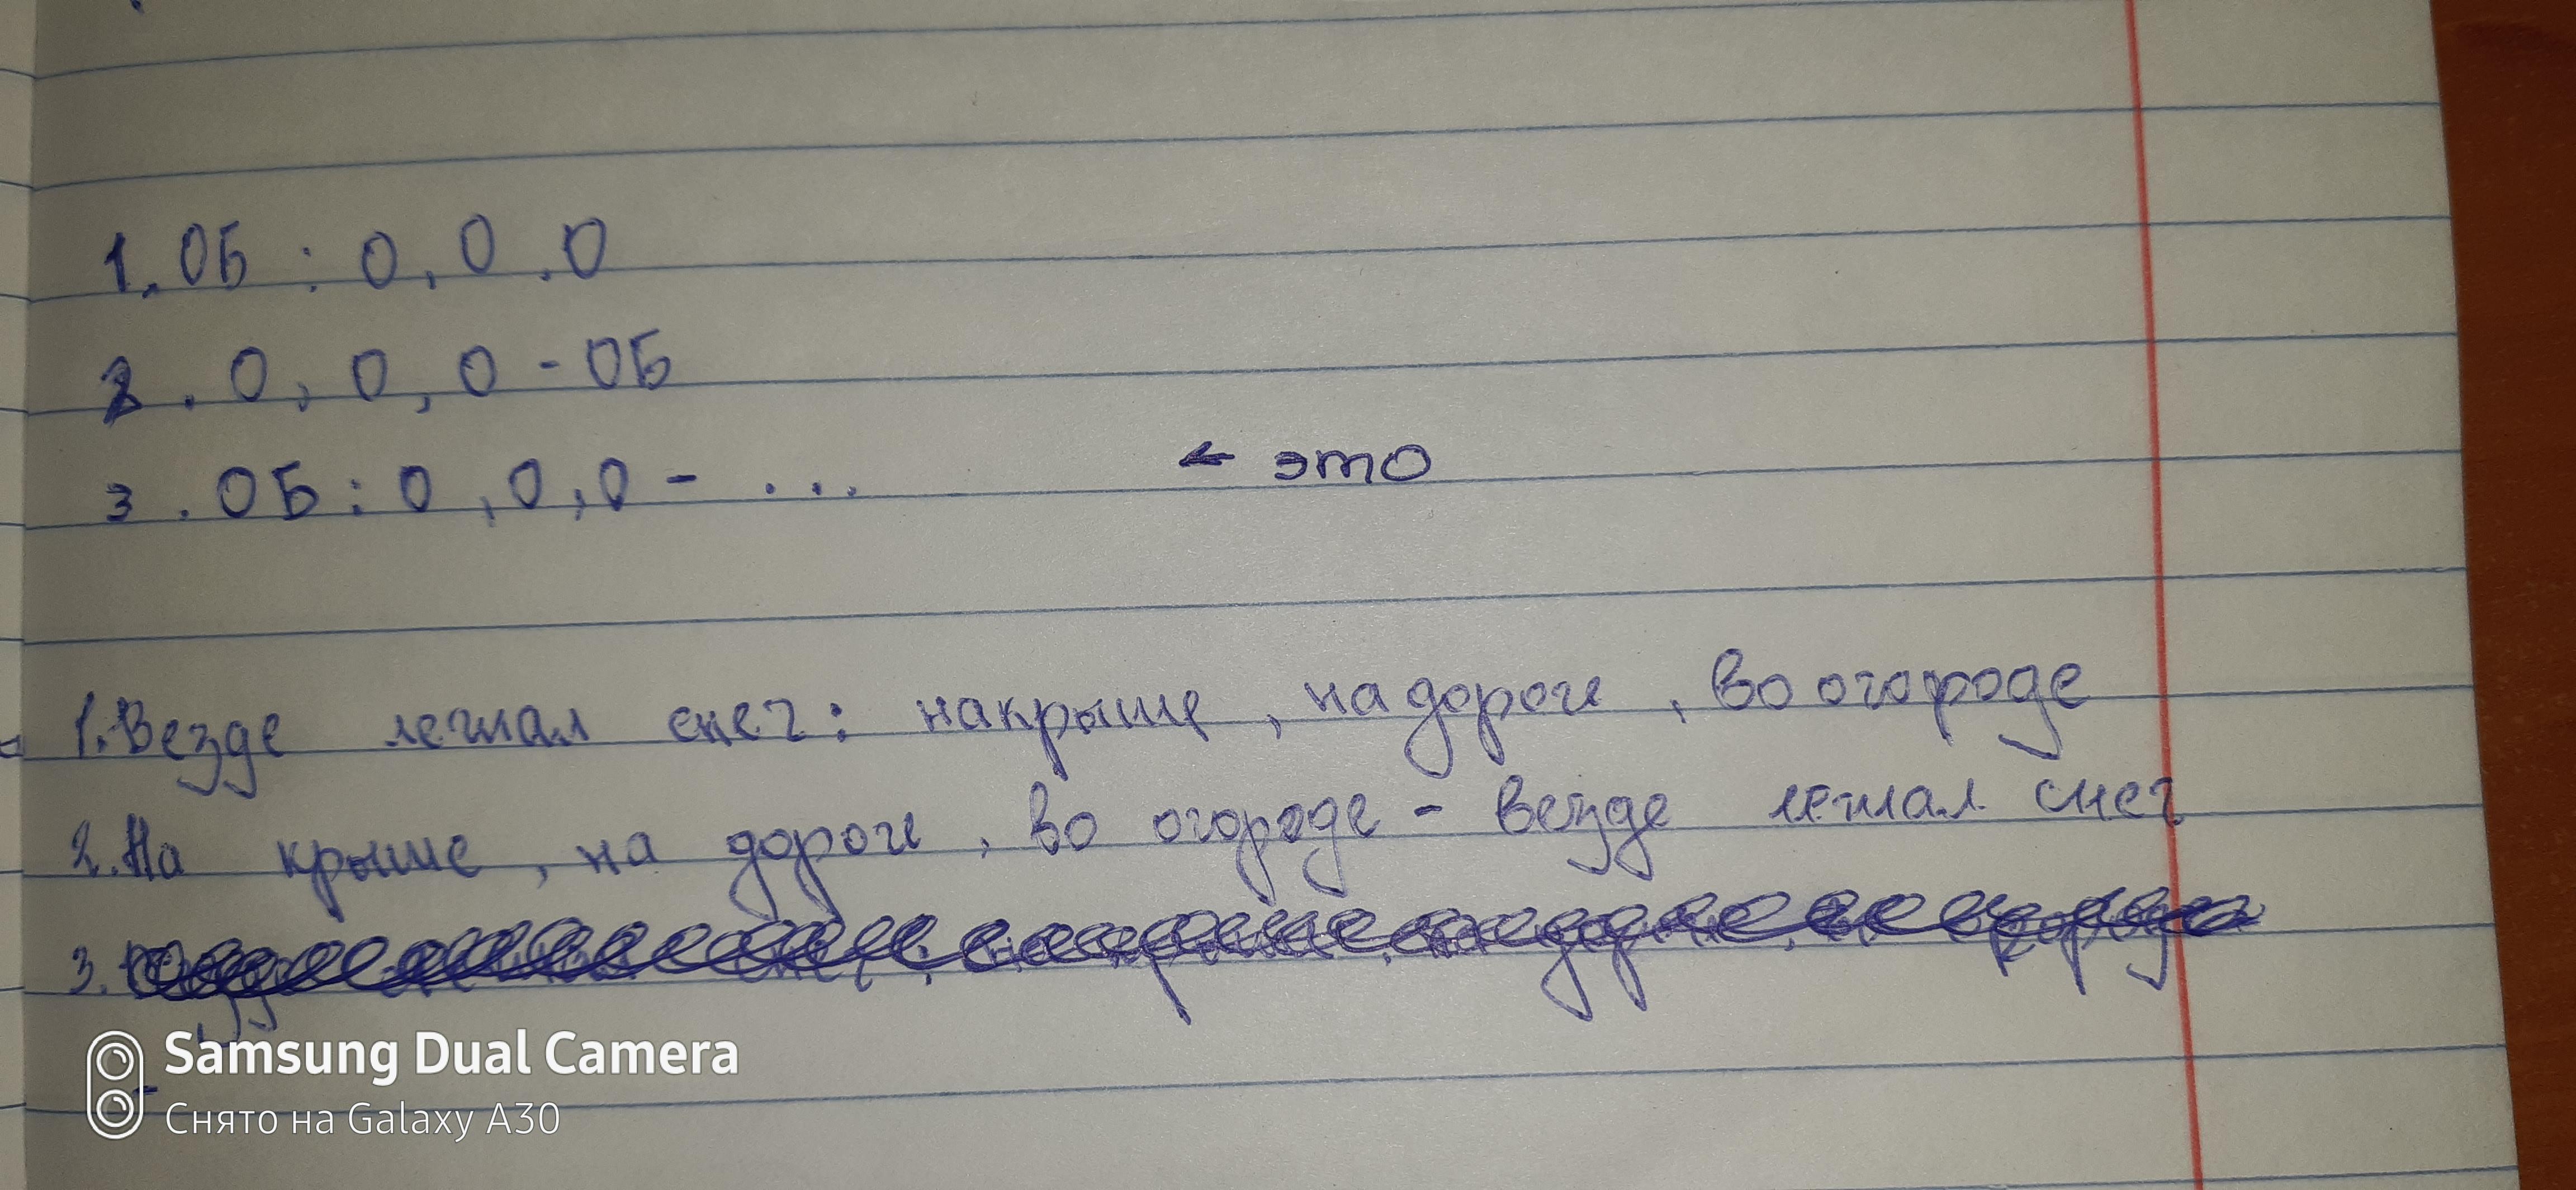 1. ОБ : О, О . О
2. О, О, О - ОБ
3. ОБ : О, О, О - ...
← это
1. Везде лежал снег: накрыше, на дороге, во огороде
2. На крыше, на дороге, во огороде - везде лежал снег
3.
Samsung Dual Camera
Снято на Galaxy A30